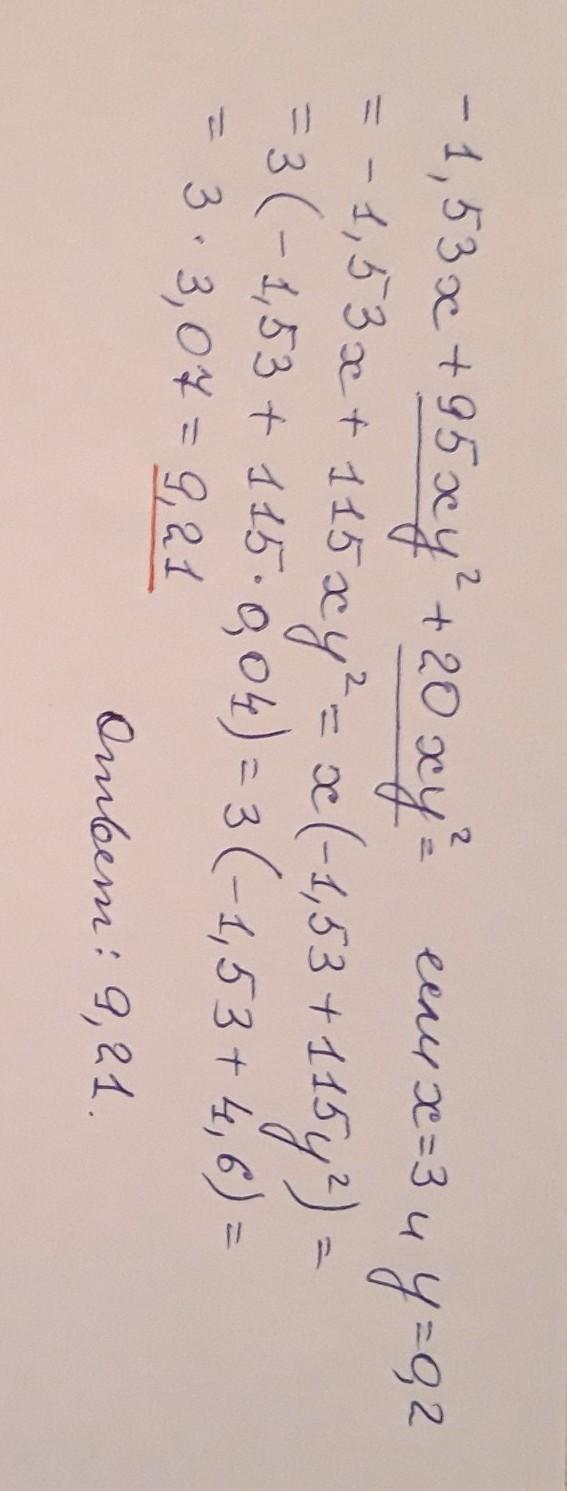 -1,53x + 95xy² + 20xy² = если x=3 и y=0,2
= -1,53x + 115xy² = x(-1,53 + 115y²) =
= 3(-1,53 + 115·0,04) = 3(-1,53 + 4,6) =
= 3·3,07 = 9,21
Ответ: 9,21.